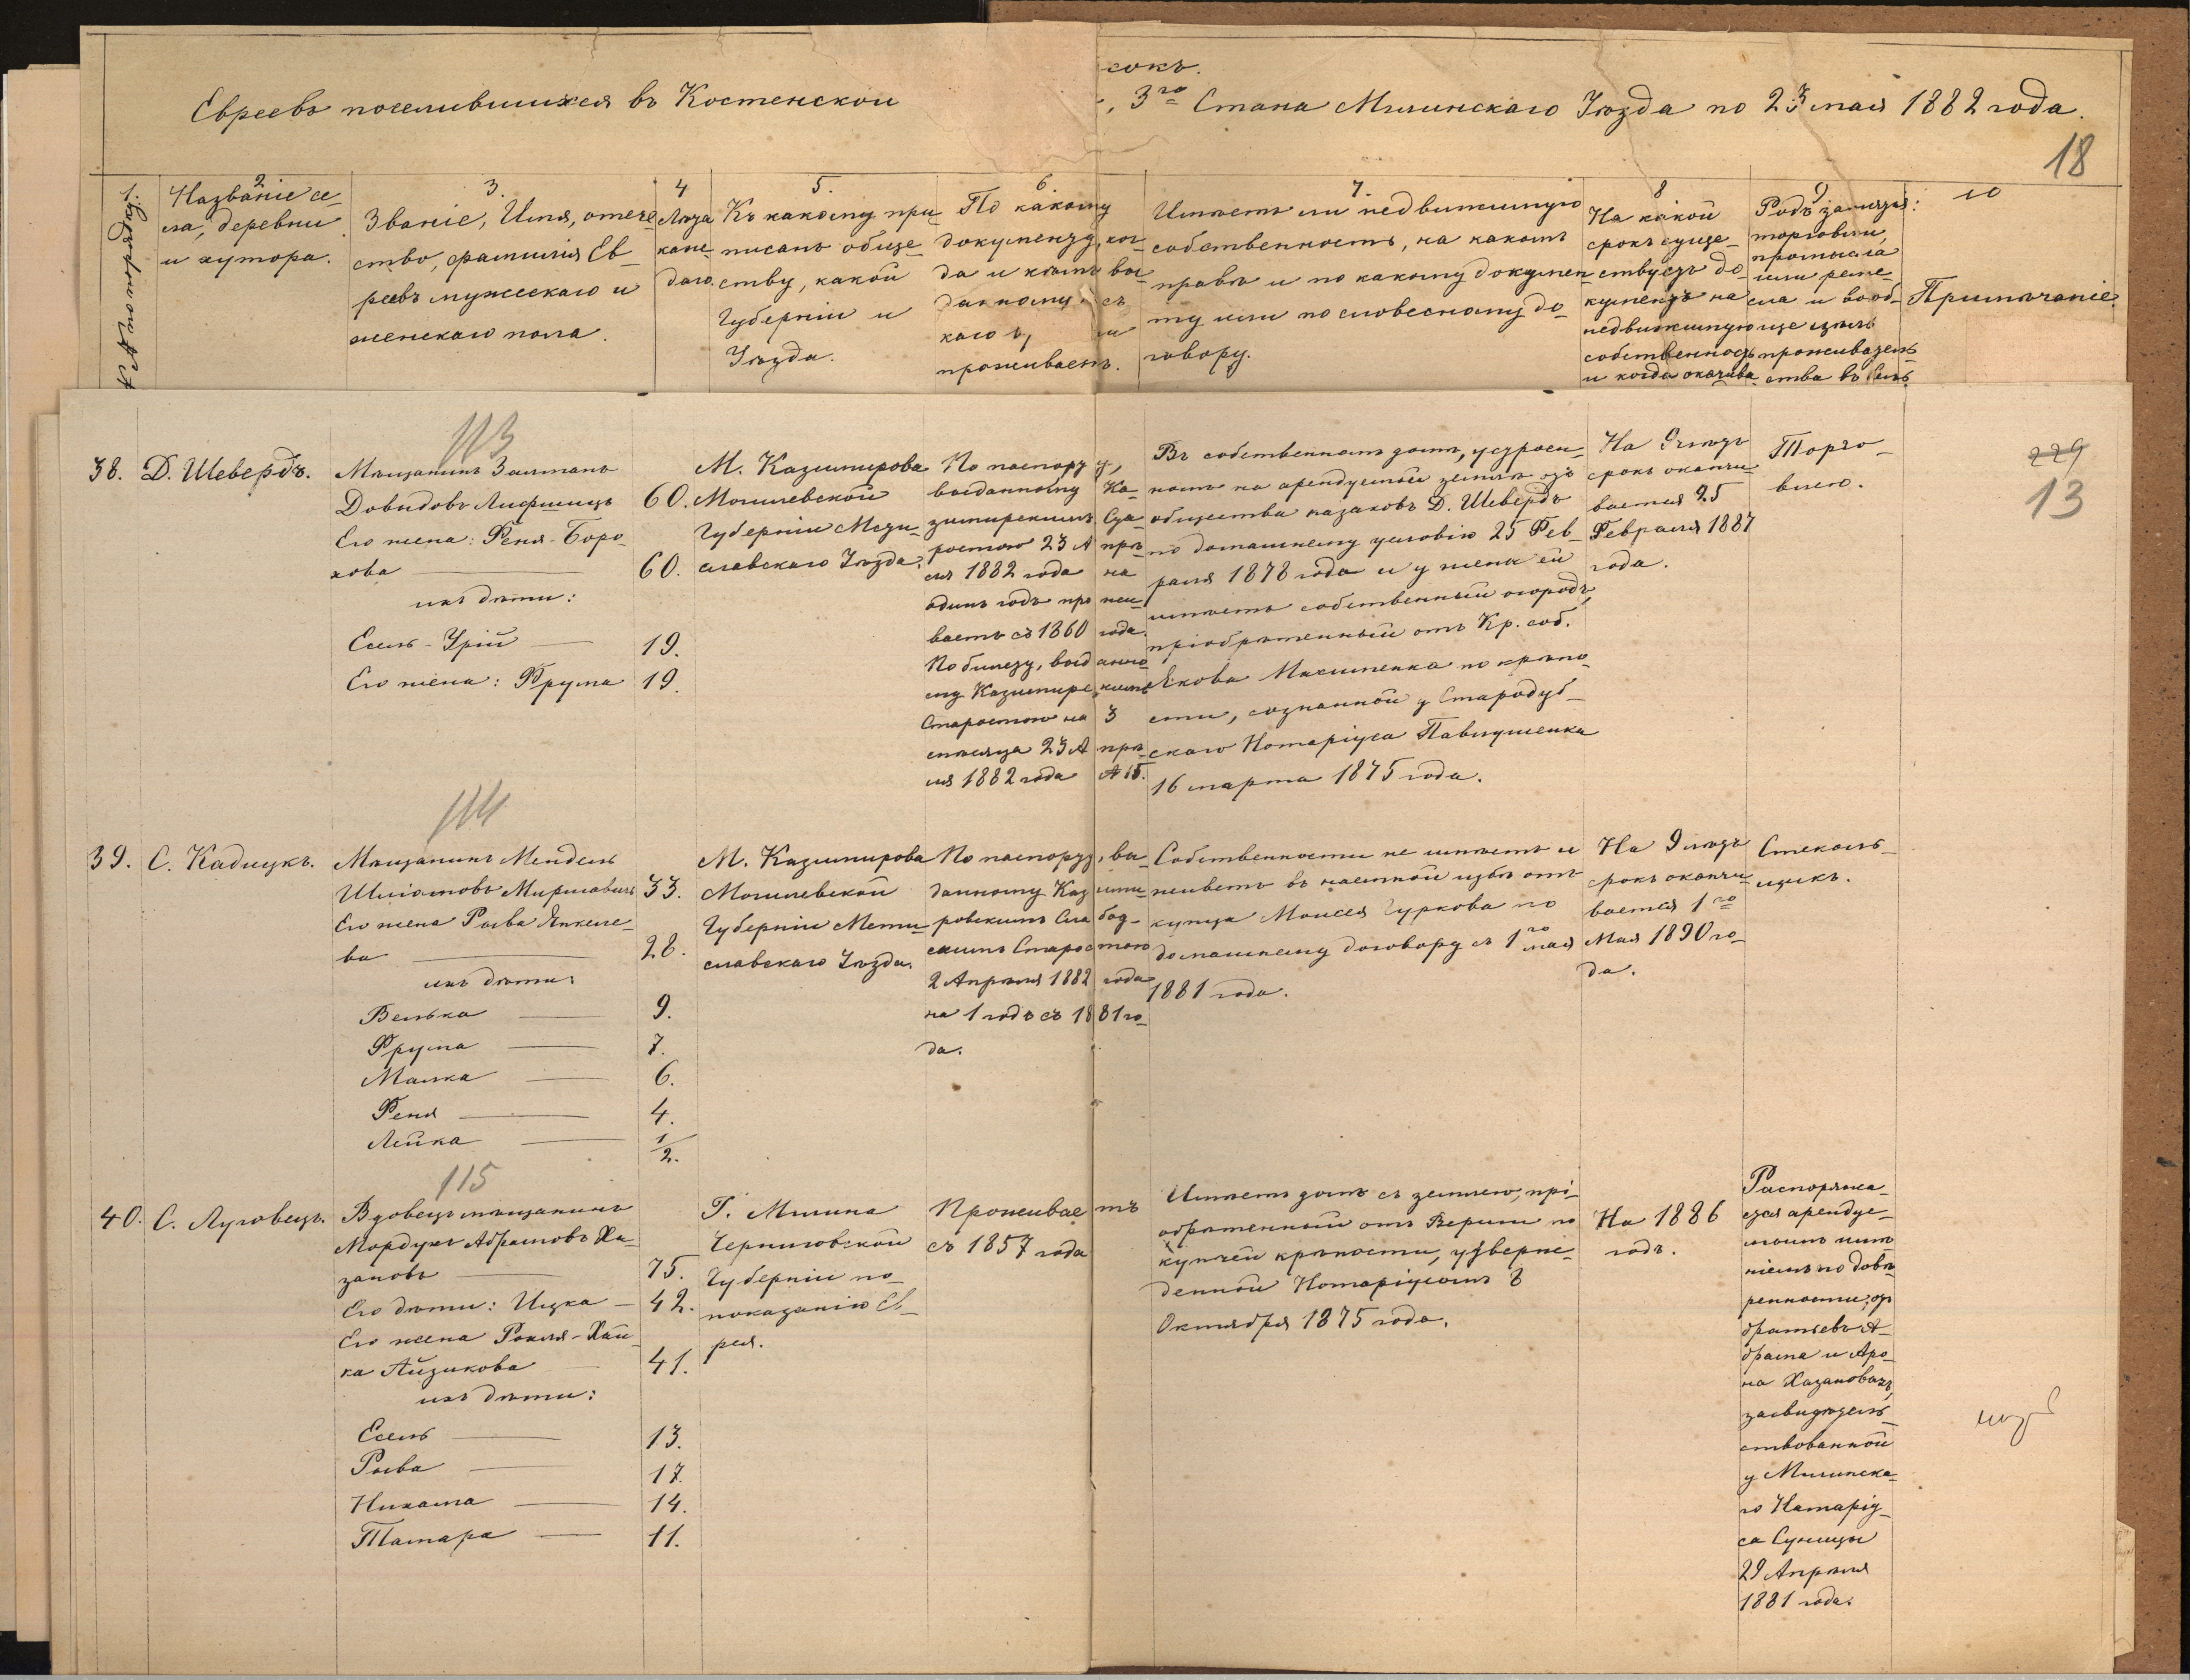 сокъ.
Евреевъ поселившихся въ Костенской
, 3го Стана Мглинскаго Уѣзда по 23 мая 1882 года.
18
1.
№ по порядку.
2
Названіе се-
ла, деревни
и хутора.
3.
Званіе, Имя, отече-
ство, фамилія Ев-
реевъ мужескаго и
женскаго пола.
4
Лѣта
каж-
даго.
5.
Къ какому при-
писанъ обще-
ству, какой
Губерніи и
Уѣзда.
6.
По какому
документу, ког-
да и кѣмъ вы-
данному и съ
каго
проживаетъ.
7.
Имѣетъ ли недвижимую
собственность, на какомъ
правѣ и по какому докумен-
ту или по словесному до-
говору.
8
На какой
срокъ суще-
ствуетъ до-
кументъ на
недвижимую
собственность
и когда оканчива
9
Родъ занятія:
торговли,
промысла
или реме-
сла и вооб-
ще цѣль
прожива­тель-
ства въ селѣ
10
Примѣчаніе.
113
38. Д. Шевердъ.
Мѣщанинъ Залманъ
Довидовъ Лифшицъ 60.
Его жена: Феня-Боро-
хова 60.
ихъ дѣти:
Есель-Урій 19.
Его жена: Фрума 19.
М. Казимирова
Могилевской
Губерніи Мсти-
славскаго Уѣзда.
По паспорту,
выданному Ка-
зимирскимъ Ста-
ростою 23 Апрѣ-
ля 1882 года на
одинъ годъ прожи-
ваетъ съ 1860 года.
По билету, выданно-
му Казимирскимъ
Старостою на 3
мѣсяца 23 Апрѣ-
ля 1882 года № 15.
Въ собственномъ домѣ, устроен-
номъ на арендуемой землѣ отъ
общества казаковъ Д. Шевердъ
по домашнему условію 25 Фев-
раля 1878 года и у жены ей
имѣетъ собственный огородъ,
пріобрѣтенный отъ Кр. соб.
Якова Масименка по крѣпо-
сти, сознанной у Стародуб-
скаго Нотаріуса Павлушенка
16 марта 1875 года.
На 9 лѣтъ
срокъ оканчи-
вается 25
Февраля 1887
года.
Торго-
влею.
229
13
114
39. С. Кадицкъ.
Мѣщанинъ Мендель
Шліомовъ Мирлавинъ 33.
Его жена Рыва Янкеле-
ва 28.
ихъ дѣти:
Велька 9.
Фрума 7.
Малка 6.
Феня 4.
Лейка 1/2.
М. Казимирова
Могилевской
Губерніи Мсти-
славскаго Уѣзда.
По паспорту, вы-
данному Казими-
ровскимъ Слабод-
скимъ Старостою
2 Апрѣля 1882 года
на 1 годъ съ 1881 го-
да.
Собственности не имѣетъ и
живетъ въ наемной избѣ отъ
купца Моисея Гуркова по
домашнему договору съ 1го мая
1881 года.
На 9 лѣтъ
срокъ оканчи-
вается 1го
Мая 1890 го-
да.
Стеколь-
щикъ.
115
40. С. Луговецъ.
Вдовецъ мѣщанинъ
Мордухъ Абрамовъ Ха-
зановъ 75.
Его дѣти: Ицка 42.
Его жена Рохля-Хай-
ка Айзикова 41.
ихъ дѣти:
Есель 13.
Рыва 17.
Нихама 14.
Тамара 11.
Г. Мглина
Черниговской
Губерніи по
показанію Ев-
рея.
Проживаетъ
съ 1857 года
Имѣетъ домъ съ землею, прі-
обрѣтенный отъ Вериги по
купчей крѣпости, утвержд-
денной Нотаріусомъ 8
Октября 1875 года.
На 1886
годъ.
Распоряжа-
ется арендуе-
мымъ имѣ-
ніемъ по довѣ-
ренности, отъ
братьевъ А-
брама и Аро-
на Хазановыхъ,
засвидѣтель-
ствованной
у Мглинска-
го Натаріу-
са Суницы
29 Апрѣля
1881 года.